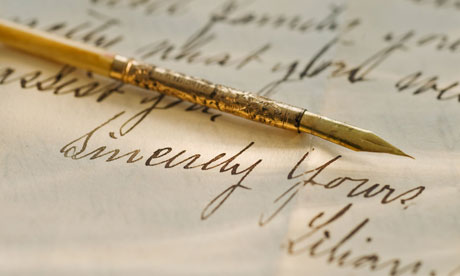 family you
that glad we
assist you
Sincerely Yours,
Lilian